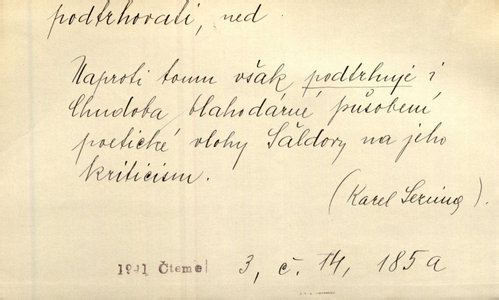 podtrhovati, ned.
Naproti tomu však podtrhuje i
Chudoba blahodárné působení
poetické vlohy Šaldovy na jeho
kriticism.
(Karel Sezima).
1941 Čteme 3, č. 14, 185a